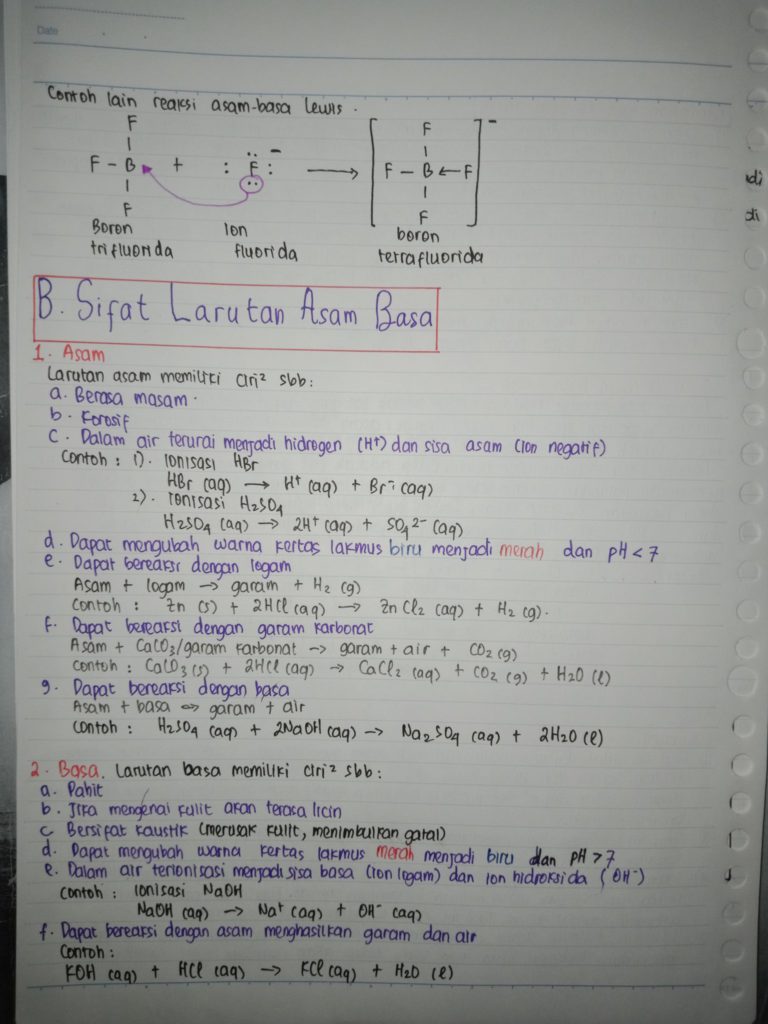 Date
Contoh lain reaksi asam-basa Lewis.
F
F – B + : F : – → [ F – B ← F ] –
F
F
F
Boron trifluorida
Ion fluorida
boron tetrafluorida
B. Sifat Larutan Asam Basa
1. Asam
Larutan asam memiliki ciri² sbb:
a. Berasa masam.
b. Korosif
c. Dalam air terurai menjadi hidrogen (H⁺) dan sisa asam (ion negatif)
Contoh : 1). Ionisasi HBr
HBr (aq) → H⁺ (aq) + Br⁻ (aq)
2). Ionisasi H₂SO₄
H₂SO₄ (aq) → 2H⁺ (aq) + SO₄²⁻ (aq)
d. Dapat mengubah warna kertas lakmus biru menjadi merah dan pH < 7
e. Dapat bereaksi dengan logam
Asam + logam → garam + H₂ (g)
Contoh : Zn (s) + 2HCl (aq) → ZnCl₂ (aq) + H₂ (g).
f. Dapat bereaksi dengan garam karbonat
Asam + CaCO₃/garam karbonat → garam + air + CO₂ (g)
Contoh : CaCO₃ (s) + 2HCl (aq) → CaCl₂ (aq) + CO₂ (g) + H₂O (l)
g. Dapat bereaksi dengan basa
Asam + basa ⇔ garam + air
Contoh : H₂SO₄ (aq) + 2NaOH (aq) → Na₂SO₄ (aq) + 2H₂O (l)
2. Basa. Larutan basa memiliki ciri² sbb:
a. Pahit
b. Jika mengenai kulit akan terasa licin
c Bersifat kaustik (merusak kulit, menimbulkan gatal)
d. Dapat mengubah warna kertas lakmus merah menjadi biru dan pH > 7
e. Dalam air terionisasi menjadi sisa basa (ion logam) dan ion hidroksida (OH⁻)
Contoh : Ionisasi NaOH
NaOH (aq) → Na⁺ (aq) + OH⁻ (aq)
f. Dapat bereaksi dengan asam menghasilkan garam dan air
Contoh :
KOH (aq) + HCl (aq) → KCl (aq) + H₂O (l)